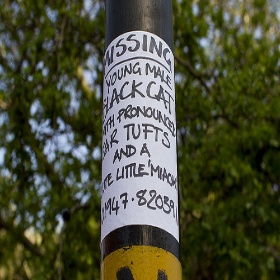 MISSING
YOUNG MALE
BLACK CAT
WITH PRONOUNCED
EAR TUFTS
AND A
LITTLE 'MIAOW
947·82059